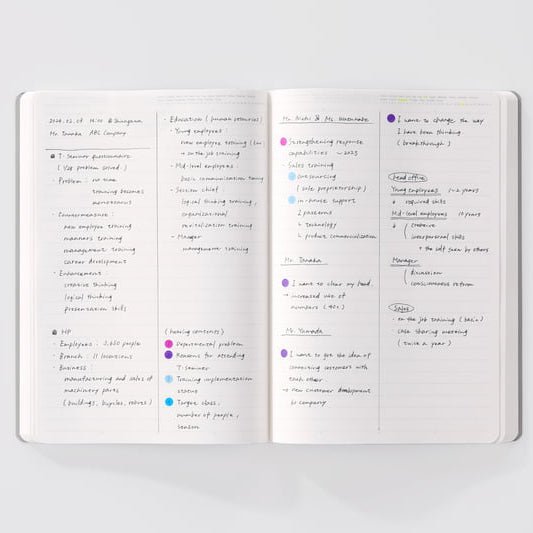 2024.02.09 14:00 @Shinagawa
Mr. Tanaka ABC Company
T-Seminar questionnaire
( 1/28 problem solved )
・Problem : no time
training becomes
monotonous
・Countermeasure :
new employee training
manners training
management training
career development
・Enhancement :
creative thinking
logical thinking
presentation skills
HP
・Employees : 3,650 people
・Branch : 11 locations
・Business :
manufacturing and sales of
machinery parts
( buildings, bicycles, robots )
・Education ( human resources )
- Young employees :
new employee training
→ on the job training
- Mid-level employees
basic communication training
- Section chief
logical thinking training,
organizational
revitalization training
- Manager
management training
( hearing contents )
Departmental problem
Reasons for attending
T-Seminar
Training implementation
status
Target class,
number of people,
season
Mr. Mori & Ms. Watanabe
Strengthening response
capabilities ~2023
・Sales training
outsourcing
( sole proprietorship )
in-house support
2 patterns
↳ technology
↳ product commercialization
Mr. Tanaka
I want to clear my head.
→ increased use of
numbers ( 40s )
Mr. Yamada
I want to get the idea of
connecting customers with
each other
→ new customer development
by company
I want to change the way
I have been thinking
( breakthrough )
head office
Young employees 1~2 years
↓ required skills
Mid-level employees 10 years
↓ creative
interpersonal skills
→ the self seen by others
Manager
discussion
consciousness reform
Sales
・on the job training ( basic )
case sharing meeting
( twice a year )